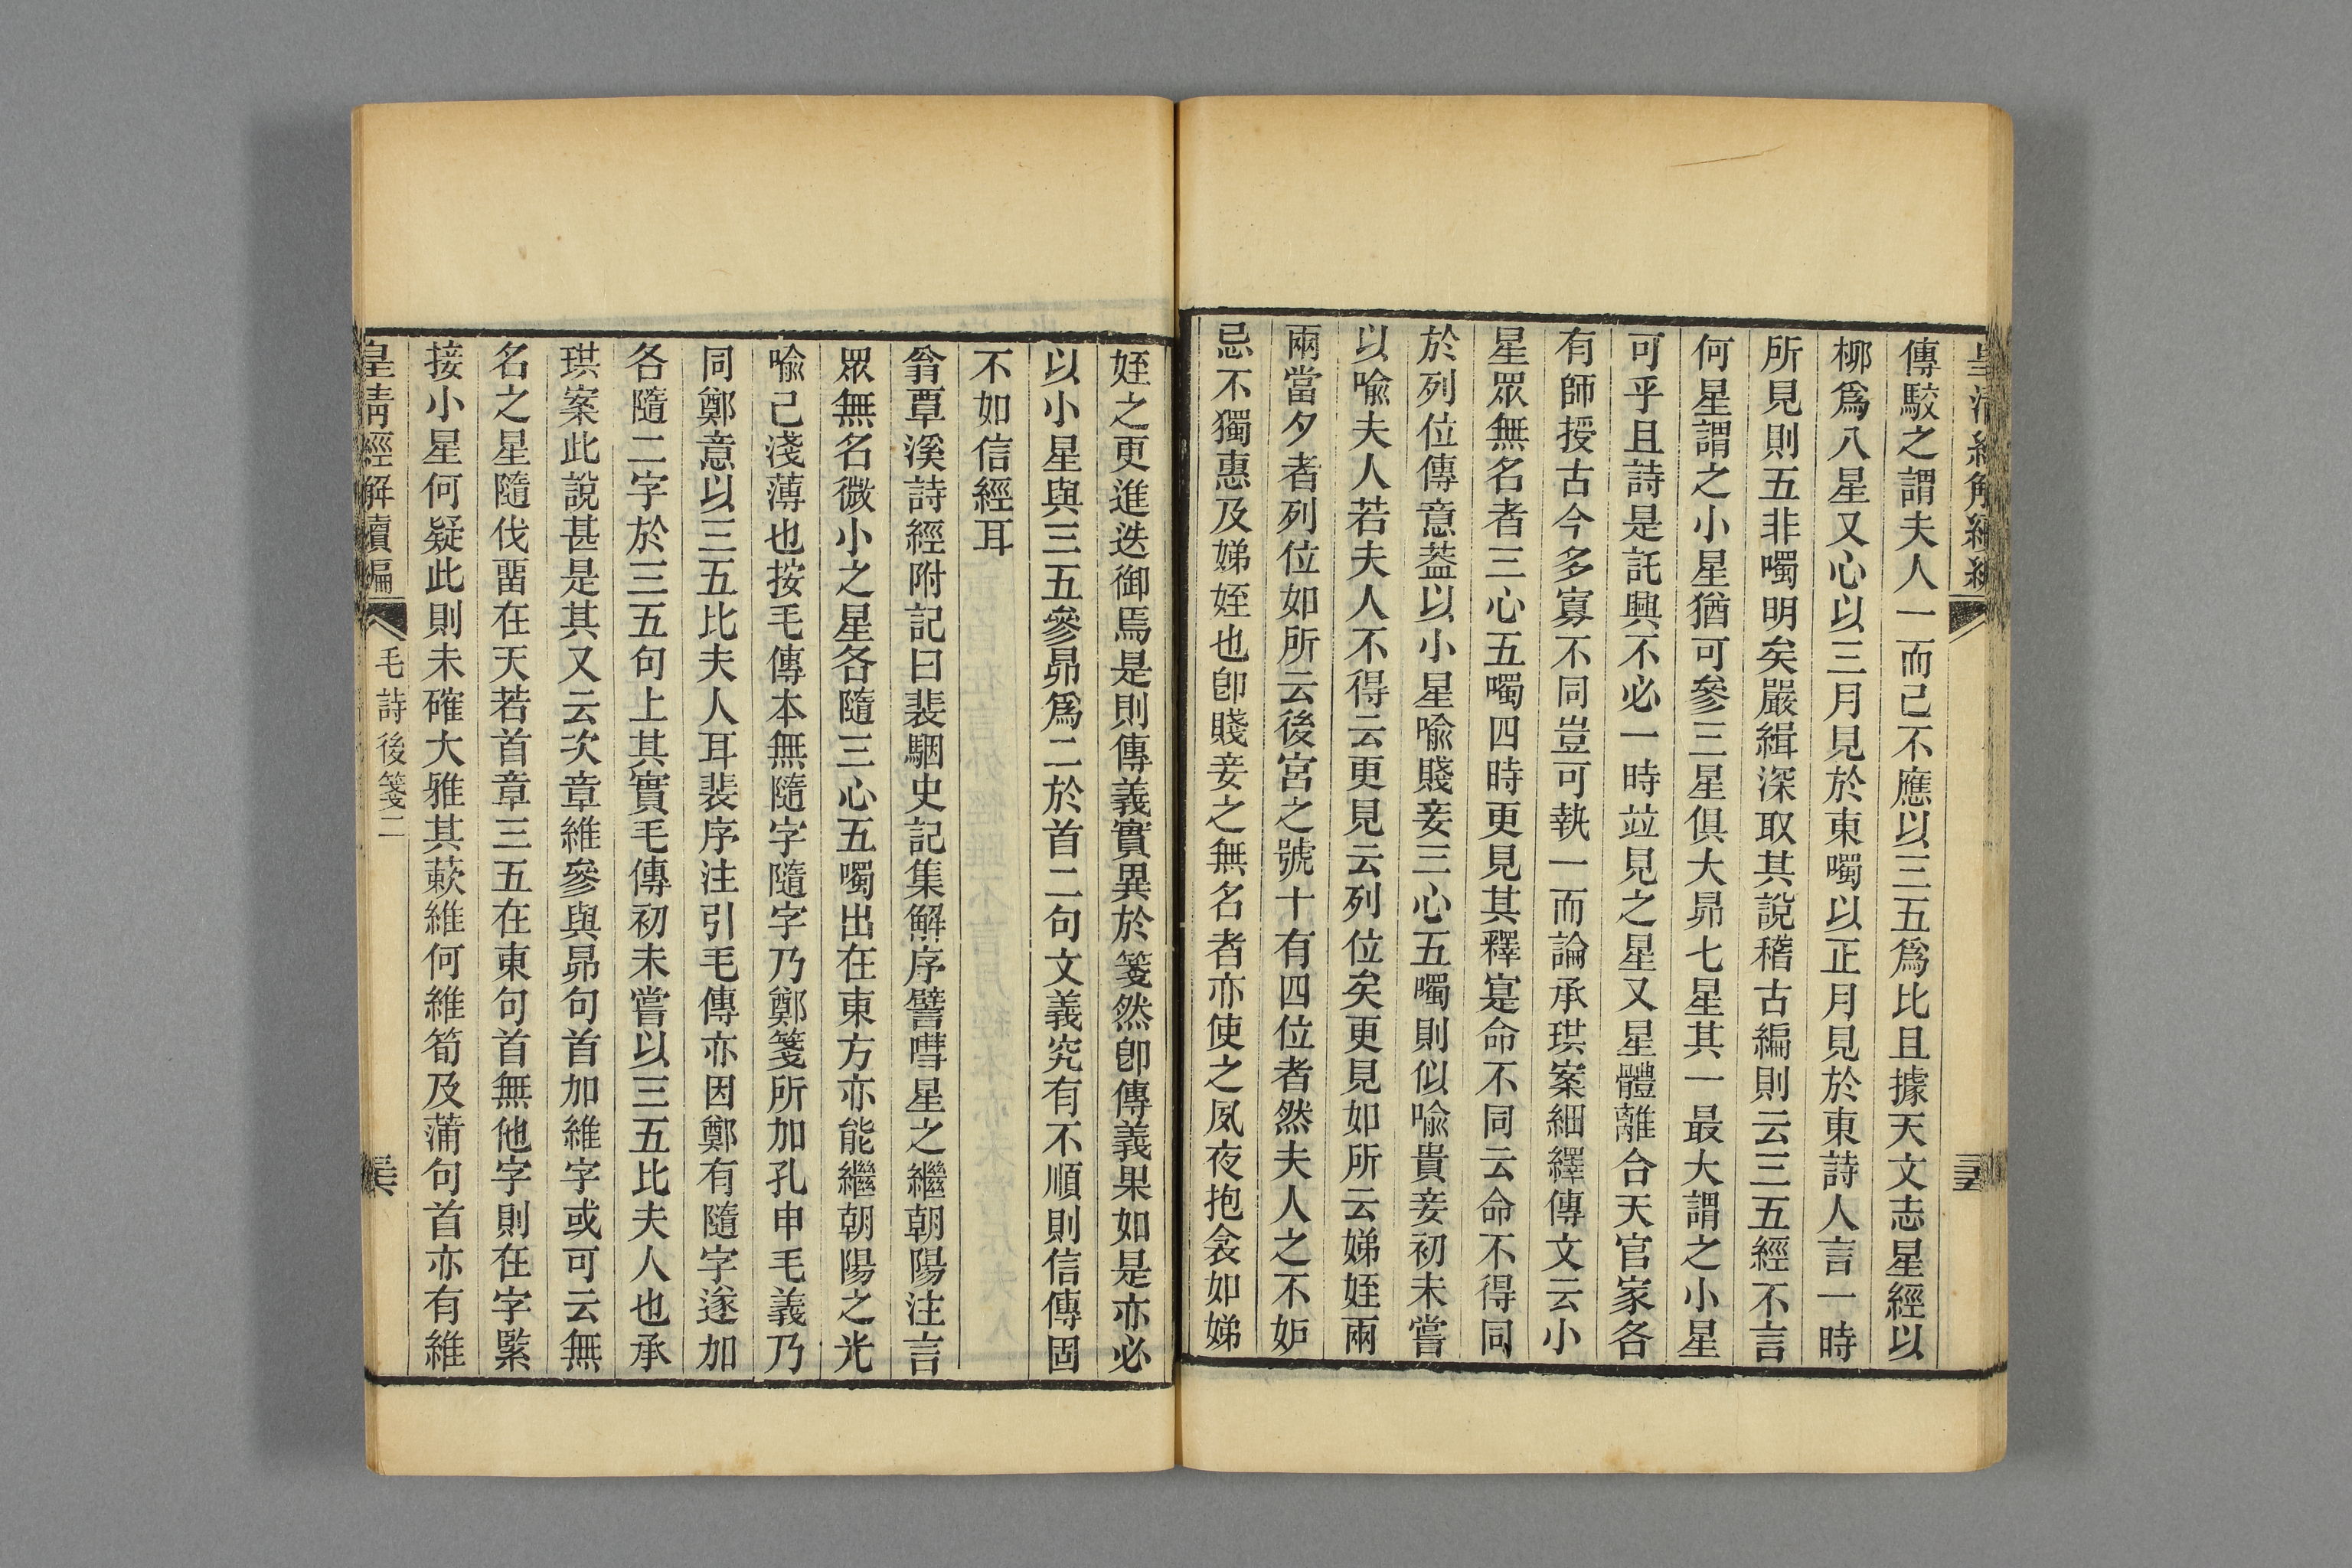 皇清經解續編
三五
傳駁之謂夫人一而己不應以三五爲比且據天文志星經以
柳爲八星又心以三月見於東噣以正月見於東詩人言一時
所見則五非噣明矣嚴緝深取其說稽古編則云三五經不言
何星謂之小星猶可參三星俱大昴七星其一最大謂之小星
可乎且詩是託興不必一時竝見之星又星體離合天官家各
有師授古今多寡不同豈可執一而論承珙案細繹傳文云小
星眾無名者三心五噣四時更見其釋寔命不同云命不得同
於列位傳意葢以小星喩賤妾三心五噣則似喩貴妾初未嘗
以喩夫人若夫人不得云更見云列位矣更見如所云娣姪兩
兩當夕者列位如所云後宮之號十有四位者然夫人之不妒
忌不獨惠及娣姪也卽賤妾之無名者亦使之夙夜抱衾如娣
姪之更進迭御焉是則傳義實異於箋然卽傳義果如是亦必
以小星與三五參昴爲二於首二句文義究有不順則信傳固
不如信經耳
翁覃溪詩經附記曰裴駰史記集解序譬嘒星之繼朝陽注言
眾無名微小之星各隨三心五噣出在東方亦能繼朝陽之光
喩己淺薄也按毛傳本無隨字隨字乃鄭箋所加孔申毛義乃
同鄭意以三五比夫人耳裴序注引毛傳亦因鄭有隨字遂加
各隨二字於三五句上其實毛傳初未嘗以三五比夫人也承
珙案此說甚是其又云次章維參與昴句首加維字或可云無
名之星隨伐畱在天若首章三五在東句首無他字則在字緊
接小星何疑此則未確大雅其蔌維何維筍及蒲句首亦有維
皇清經解續編
毛詩後箋二
三六